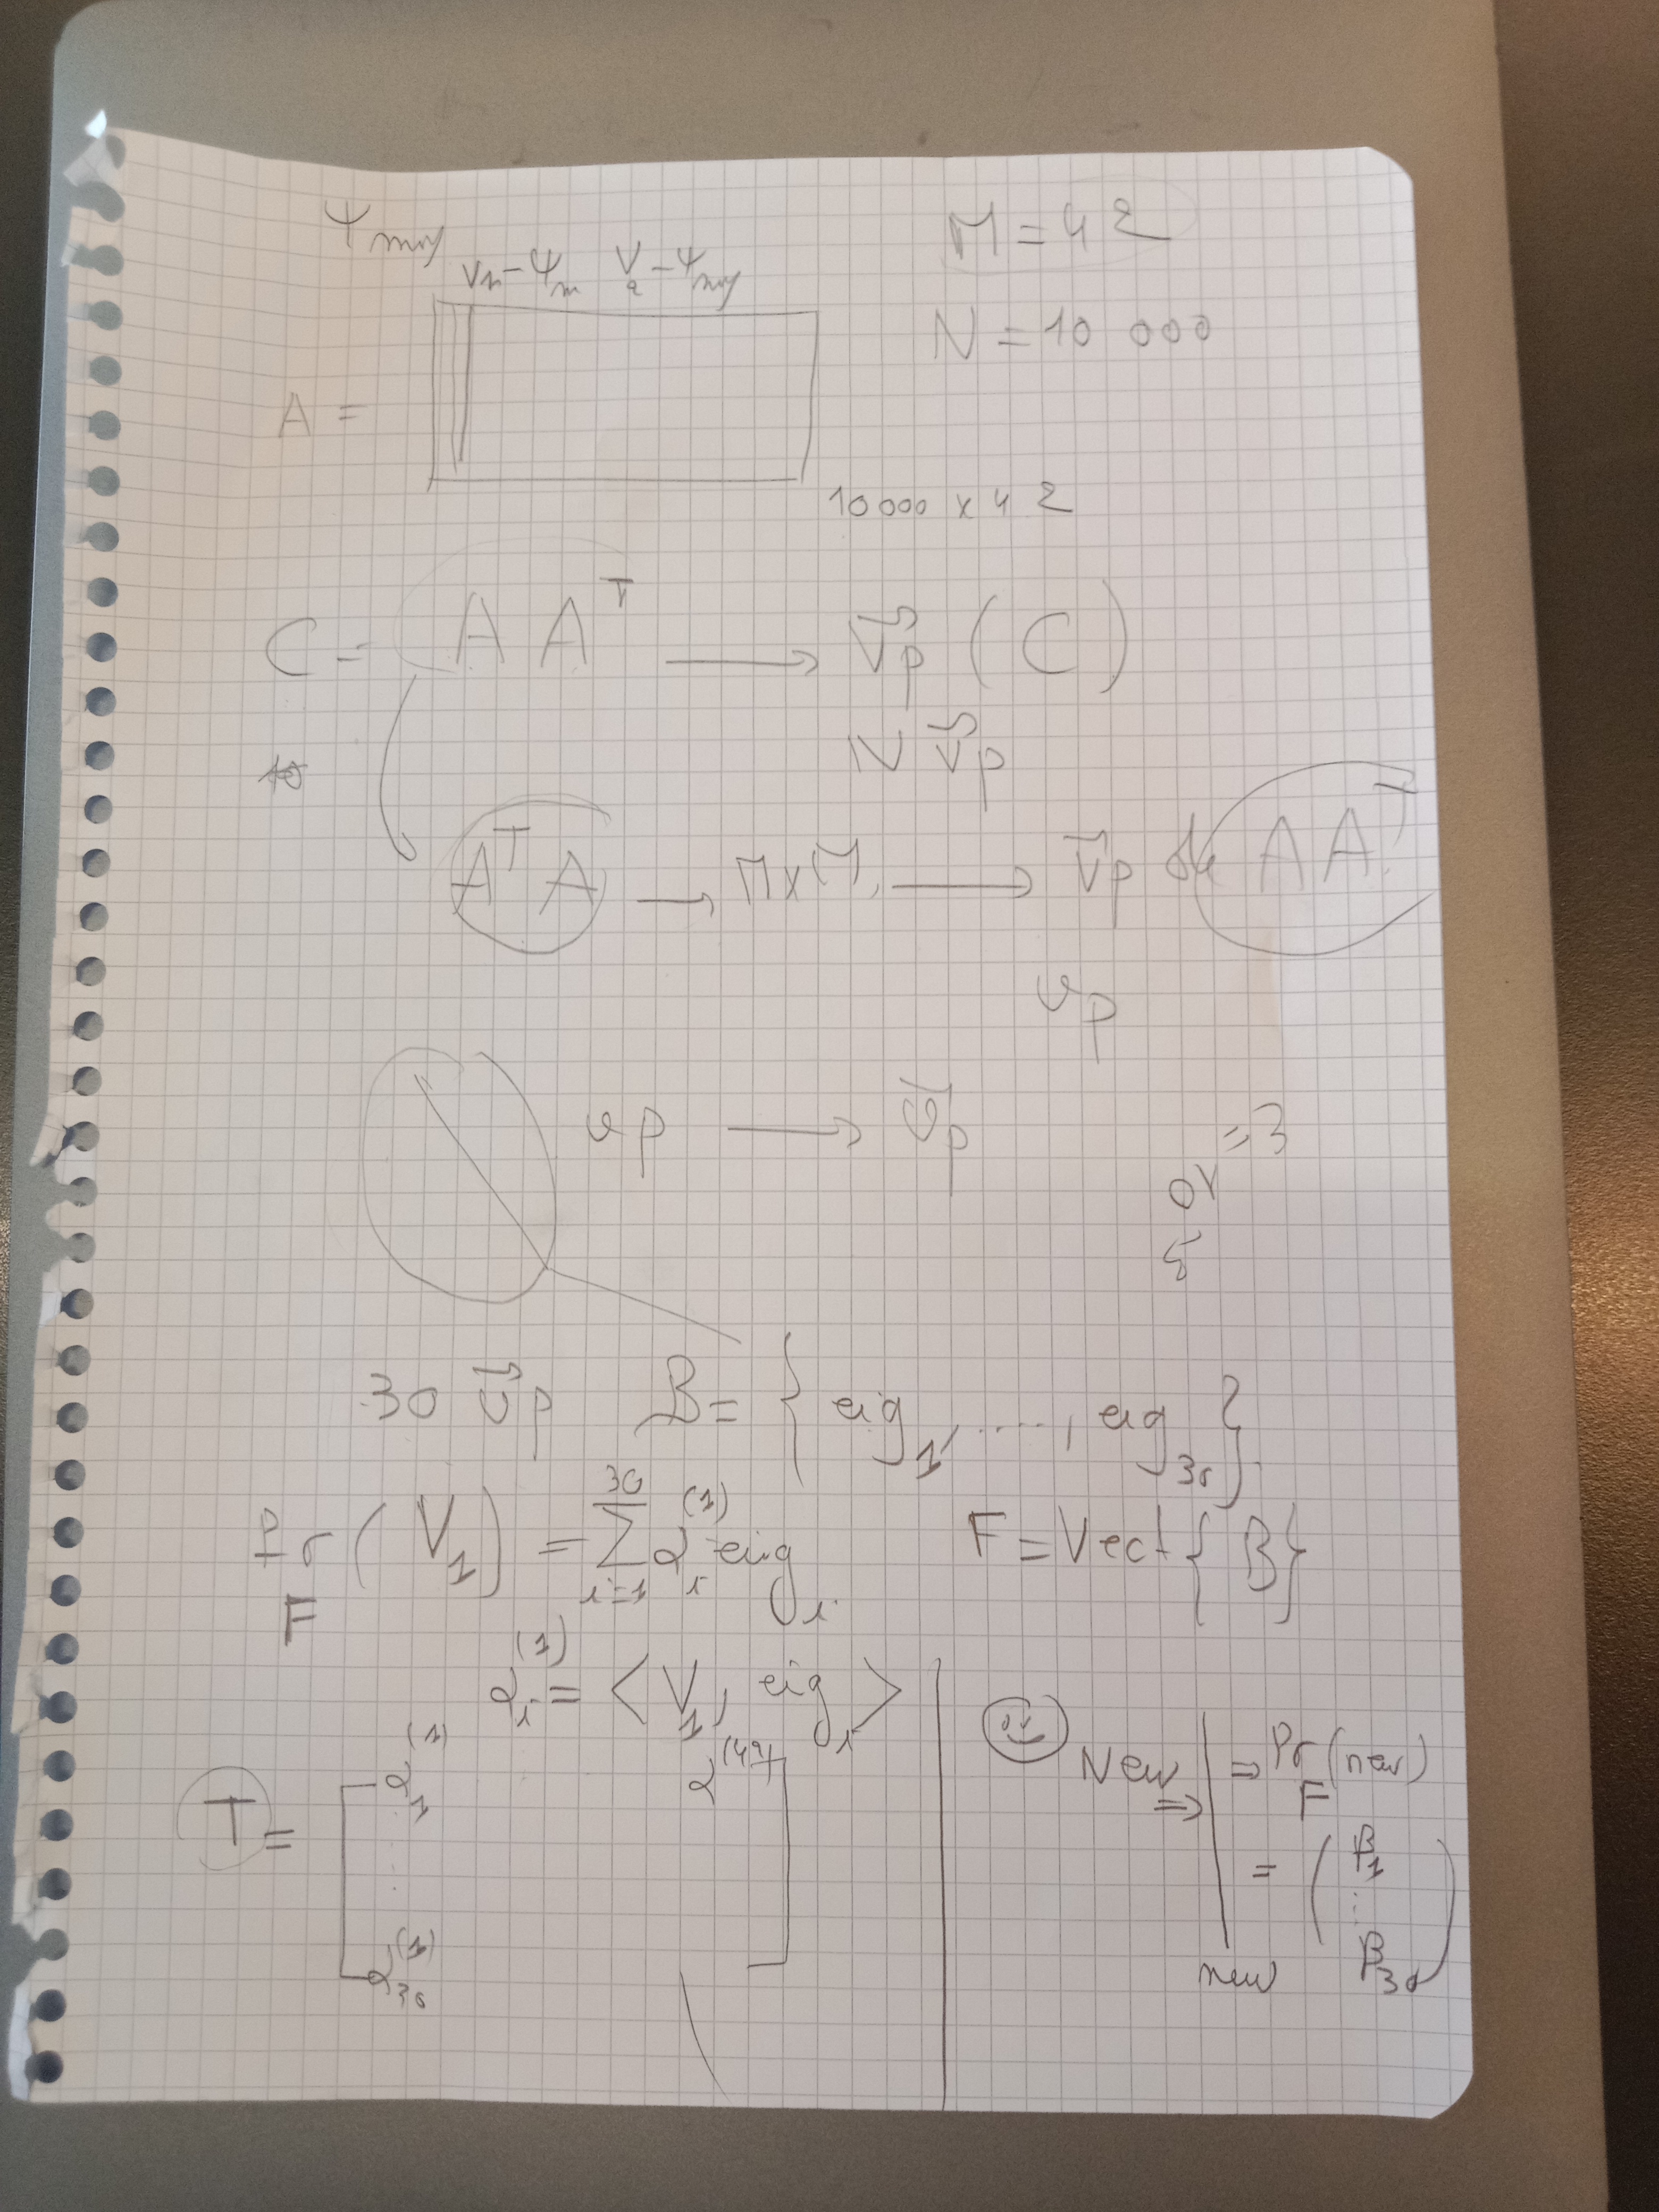 Ψmoy
V1-Ψm V2-Ψmoy
M = 42
N = 10 000
A =
10000 x 42
C = A A^T → V⃗p (C)
N V⃗p
A^T A → M x M → V⃗p de A A^T
vp
vp → v⃗p
= 3
30 v⃗p B = { eig_1, ...., eig_30 }
Pr_F ( V_1 ) = Σ_{i=1}^{30} α_i^(1) eig_i F = Vect { B }
α_i^(1) = < V_1, eig_i >
New ⇒ | ⇒ Pr_F (new)
T = [ α_1^(1) ... α_30^(1) α^(42) ]
= ( β_1 ... β_30 )
new